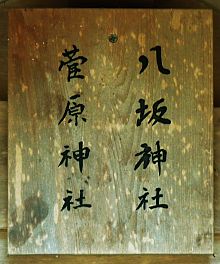 八坂神社
菅原神社